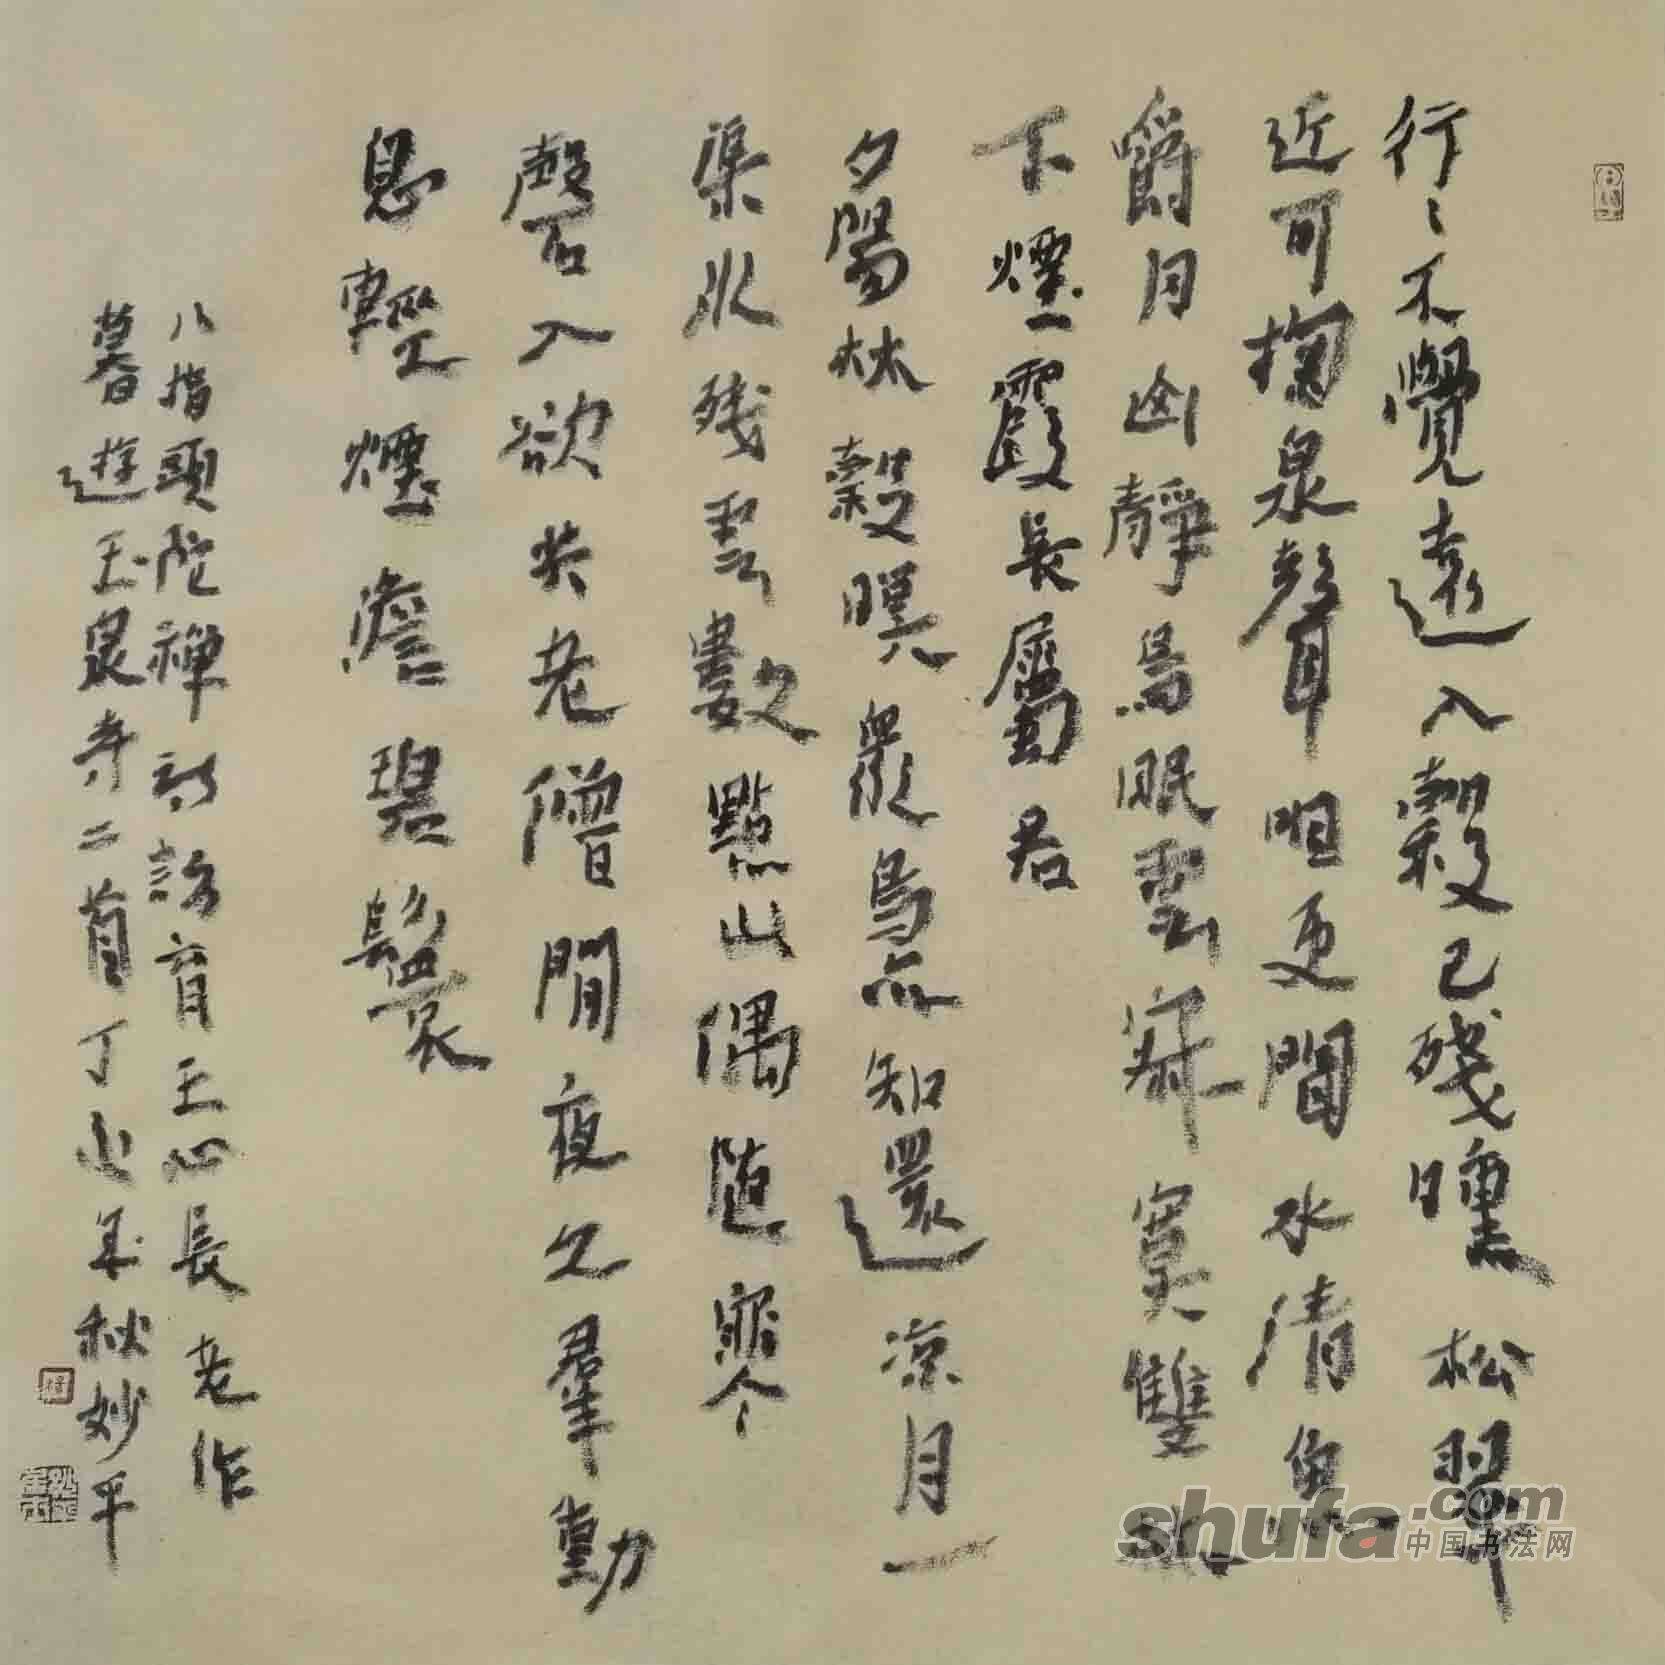 行〻不覺遠入穀已殘曛松翠
近可掬泉聲咀更聞水清魚
嚼月山靜鳥眠雲寂寞雙林
下煙霞長屬君
夕陽林穀暝眾鳥亦知還凉月一
渠水残雲數點山偶随寒
磬入欲共老僧閒夜久羣動
息輕煙澹碧鬟
八指頭陀禪詩訪育王心長老作
暮遊玉泉寺二首丁年秋妙平
shufa.com
中国书法网